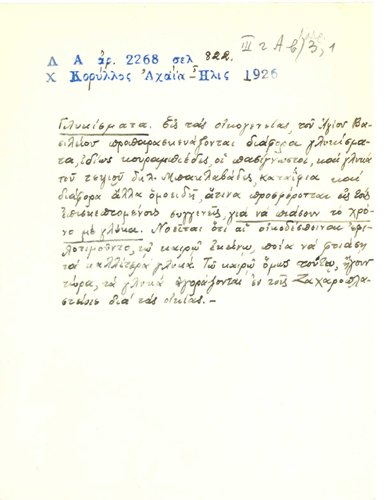 III 2 Α β/3, 1
Λ Α ἀρ. 2268 σελ 822.
Χ Κορύλλος Ἀχαΐα-Ἦλις 1926
Γλυκίσματα. Εἰς τὰς οἰκογενείας, τοῦ Ἁγίου Βα-
σιλείου προπαρασκευάζονται διάφορα γλυκίσμα-
τα, ἰδίως κουραμπιέδες, οἱ πασίγνωστοι, καὶ γλυκὰ
τοῦ ταψιοῦ δηλ. Μπακλαβάδες, καταΐφια καὶ
διάφορα ἄλλα ὁμοειδῆ, ἅτινα προσφέρονται εἰς τοὺς
ἐπισκεπτομένους συγγενεῖς, γιὰ νὰ πιάσουν τὸ χρό-
νο μὲ γλύκα. Νοεῖται ὅτι αἱ οἰκοδέσποιναι ἐφι-
λοτιμοῦντο, τῷ καιρῷ ἐκείνῳ, ποία νὰ φτιάσῃ
τὰ καλλίτερα γλυκά. Τῷ καιρῷ ὅμως τούτῳ, ἤγουν
τώρα, τὰ γλυκὰ ἀγοράζονται ἐν τοῖς Ζαχαροπλα-
στείοις διὰ τὰς οἰκίας.-